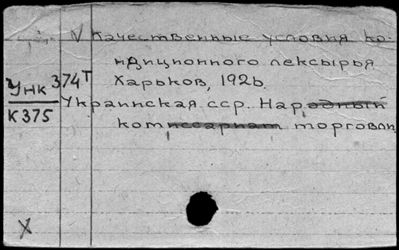 V Качественные условия ко-
ндиционного лексырья
Харьков, 1926.
Украинская сср. Народный
комиссариат торговли
Унк 374т
К375
X